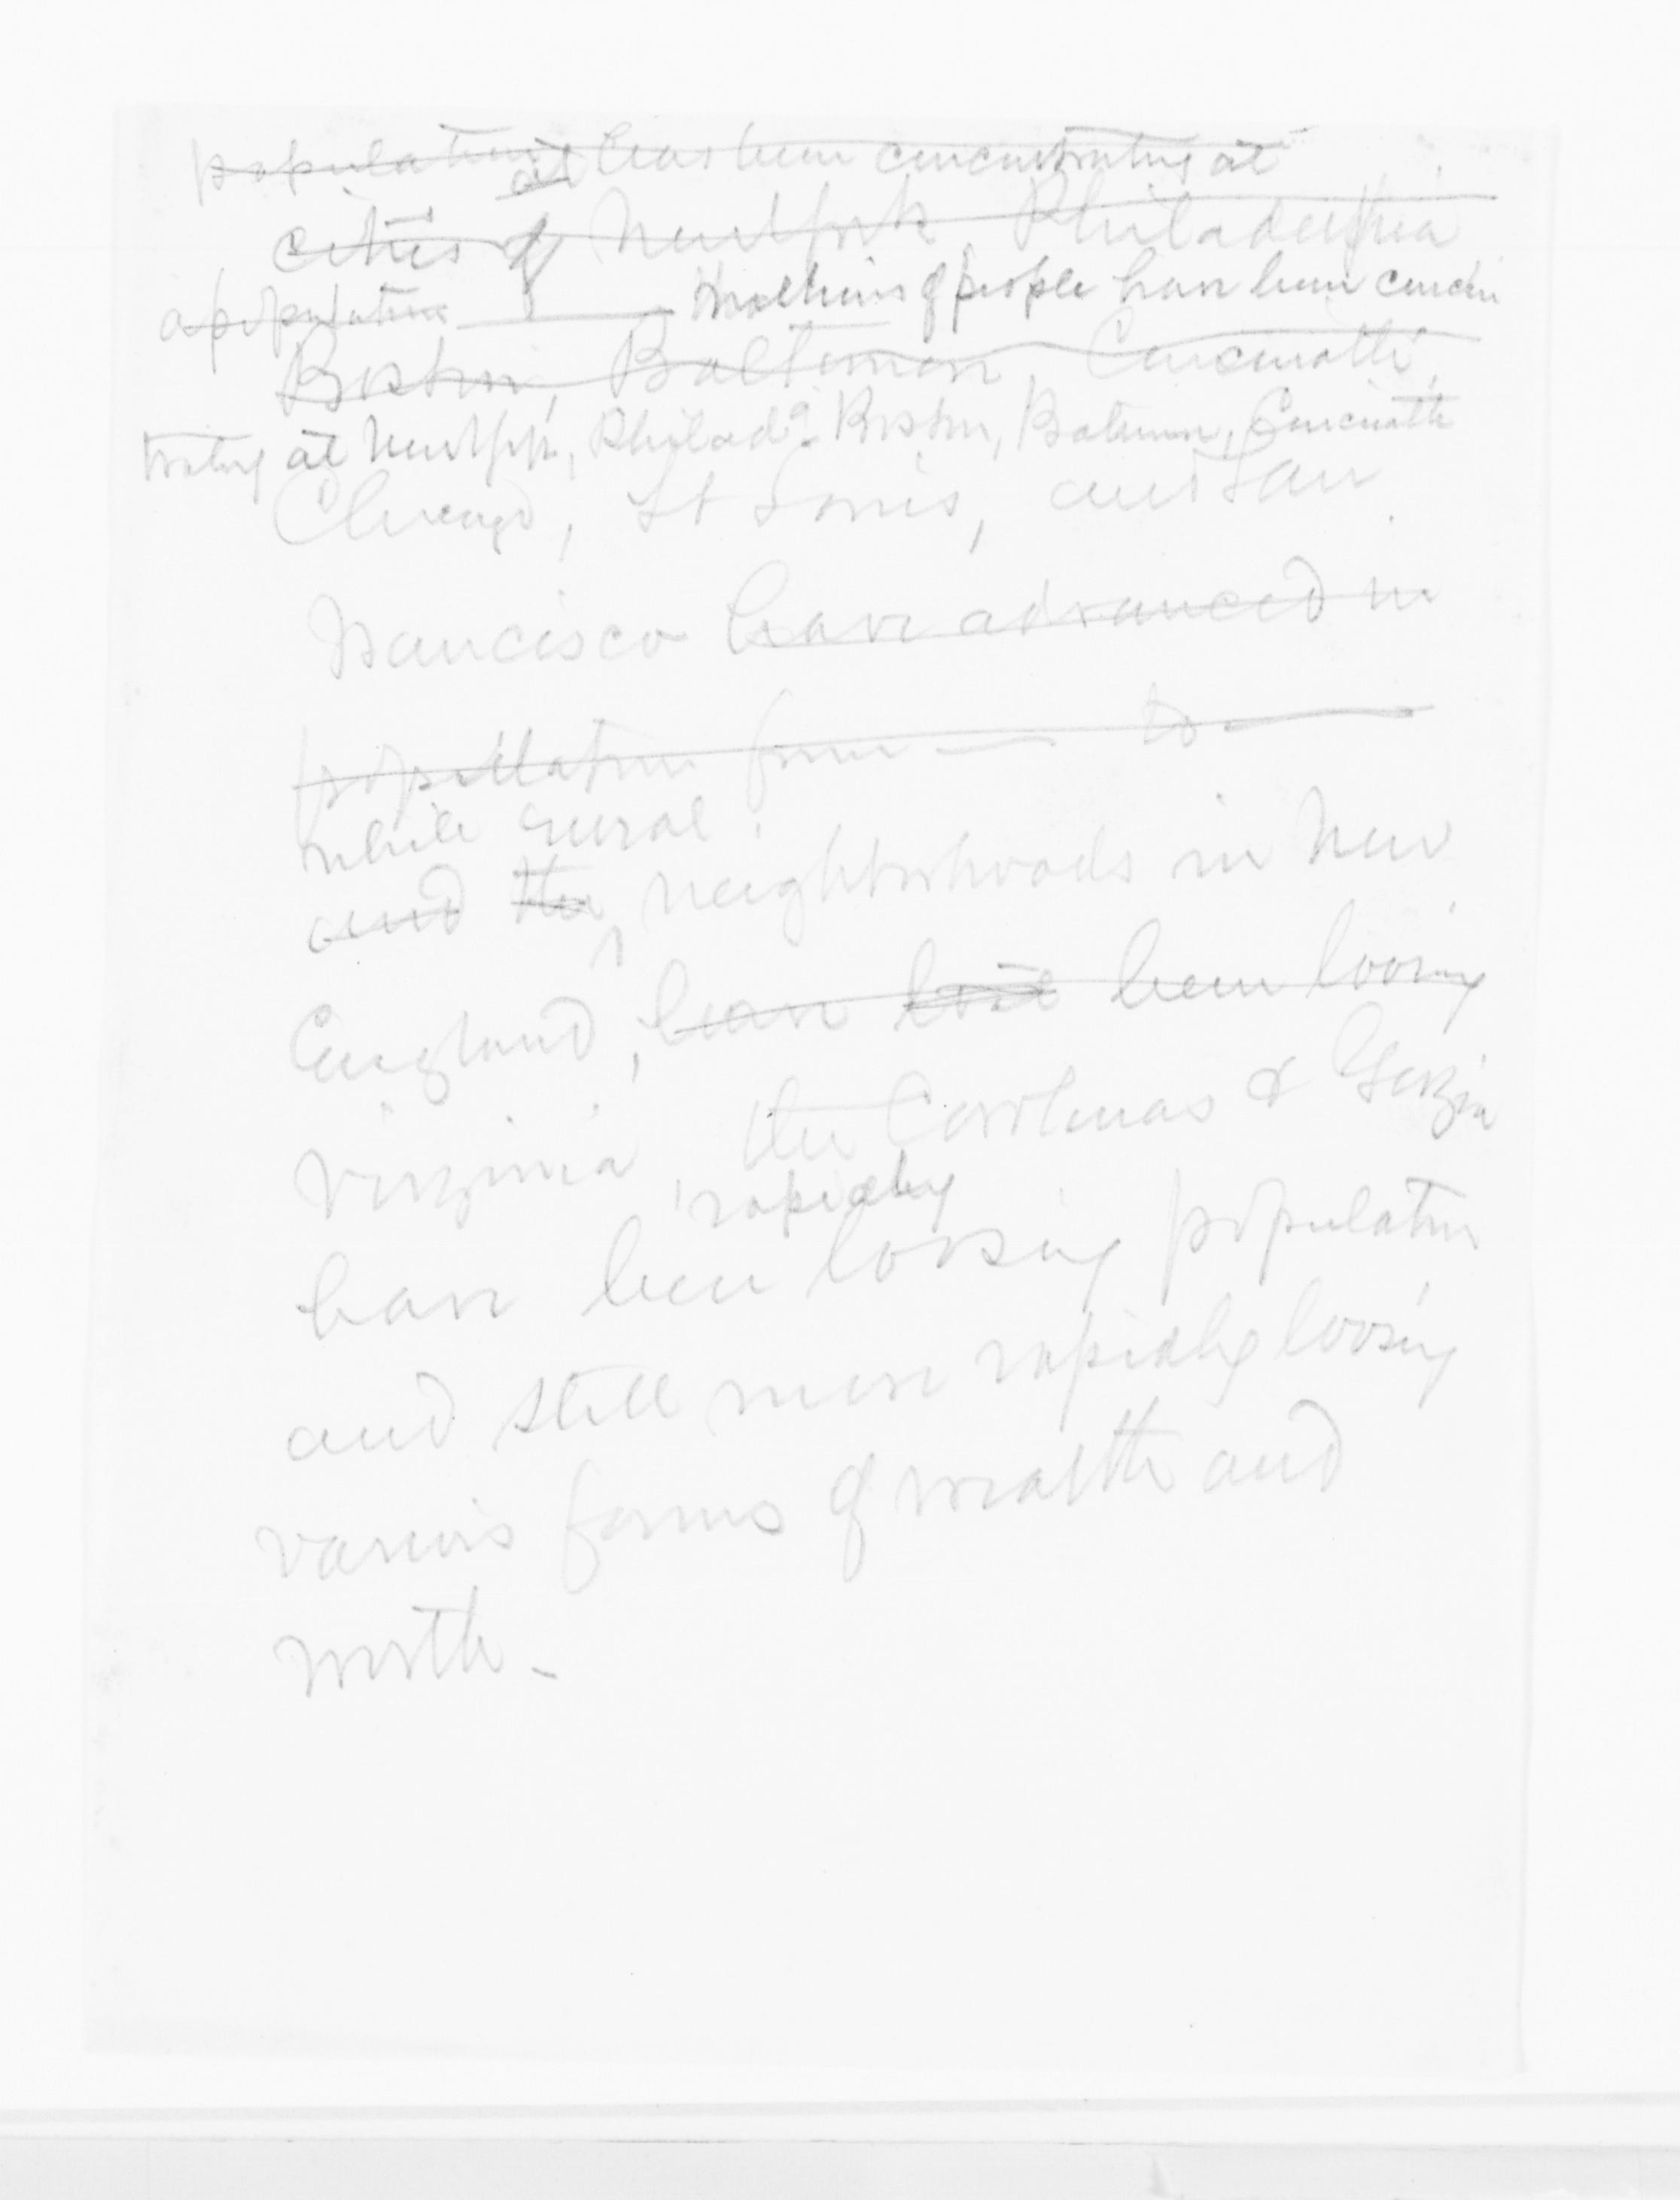 population at has been concentrating at
cities of New York Philadelphia
a population millions of people have been concen
Boston, Baltimore, Cincinatti,
trating at New York, Philada. Boston, Batimore, Cincinatti
Chicago, St Louis, and San
Francisco have advanced in
popullation from — to —
while rural
and the neighborhoods in New
England, have lost been loosing
Virginia, the Carolinas & Georgia
rapidly
have been loosing population
and still more rapidly loosing
various forms of wealth and
worth -